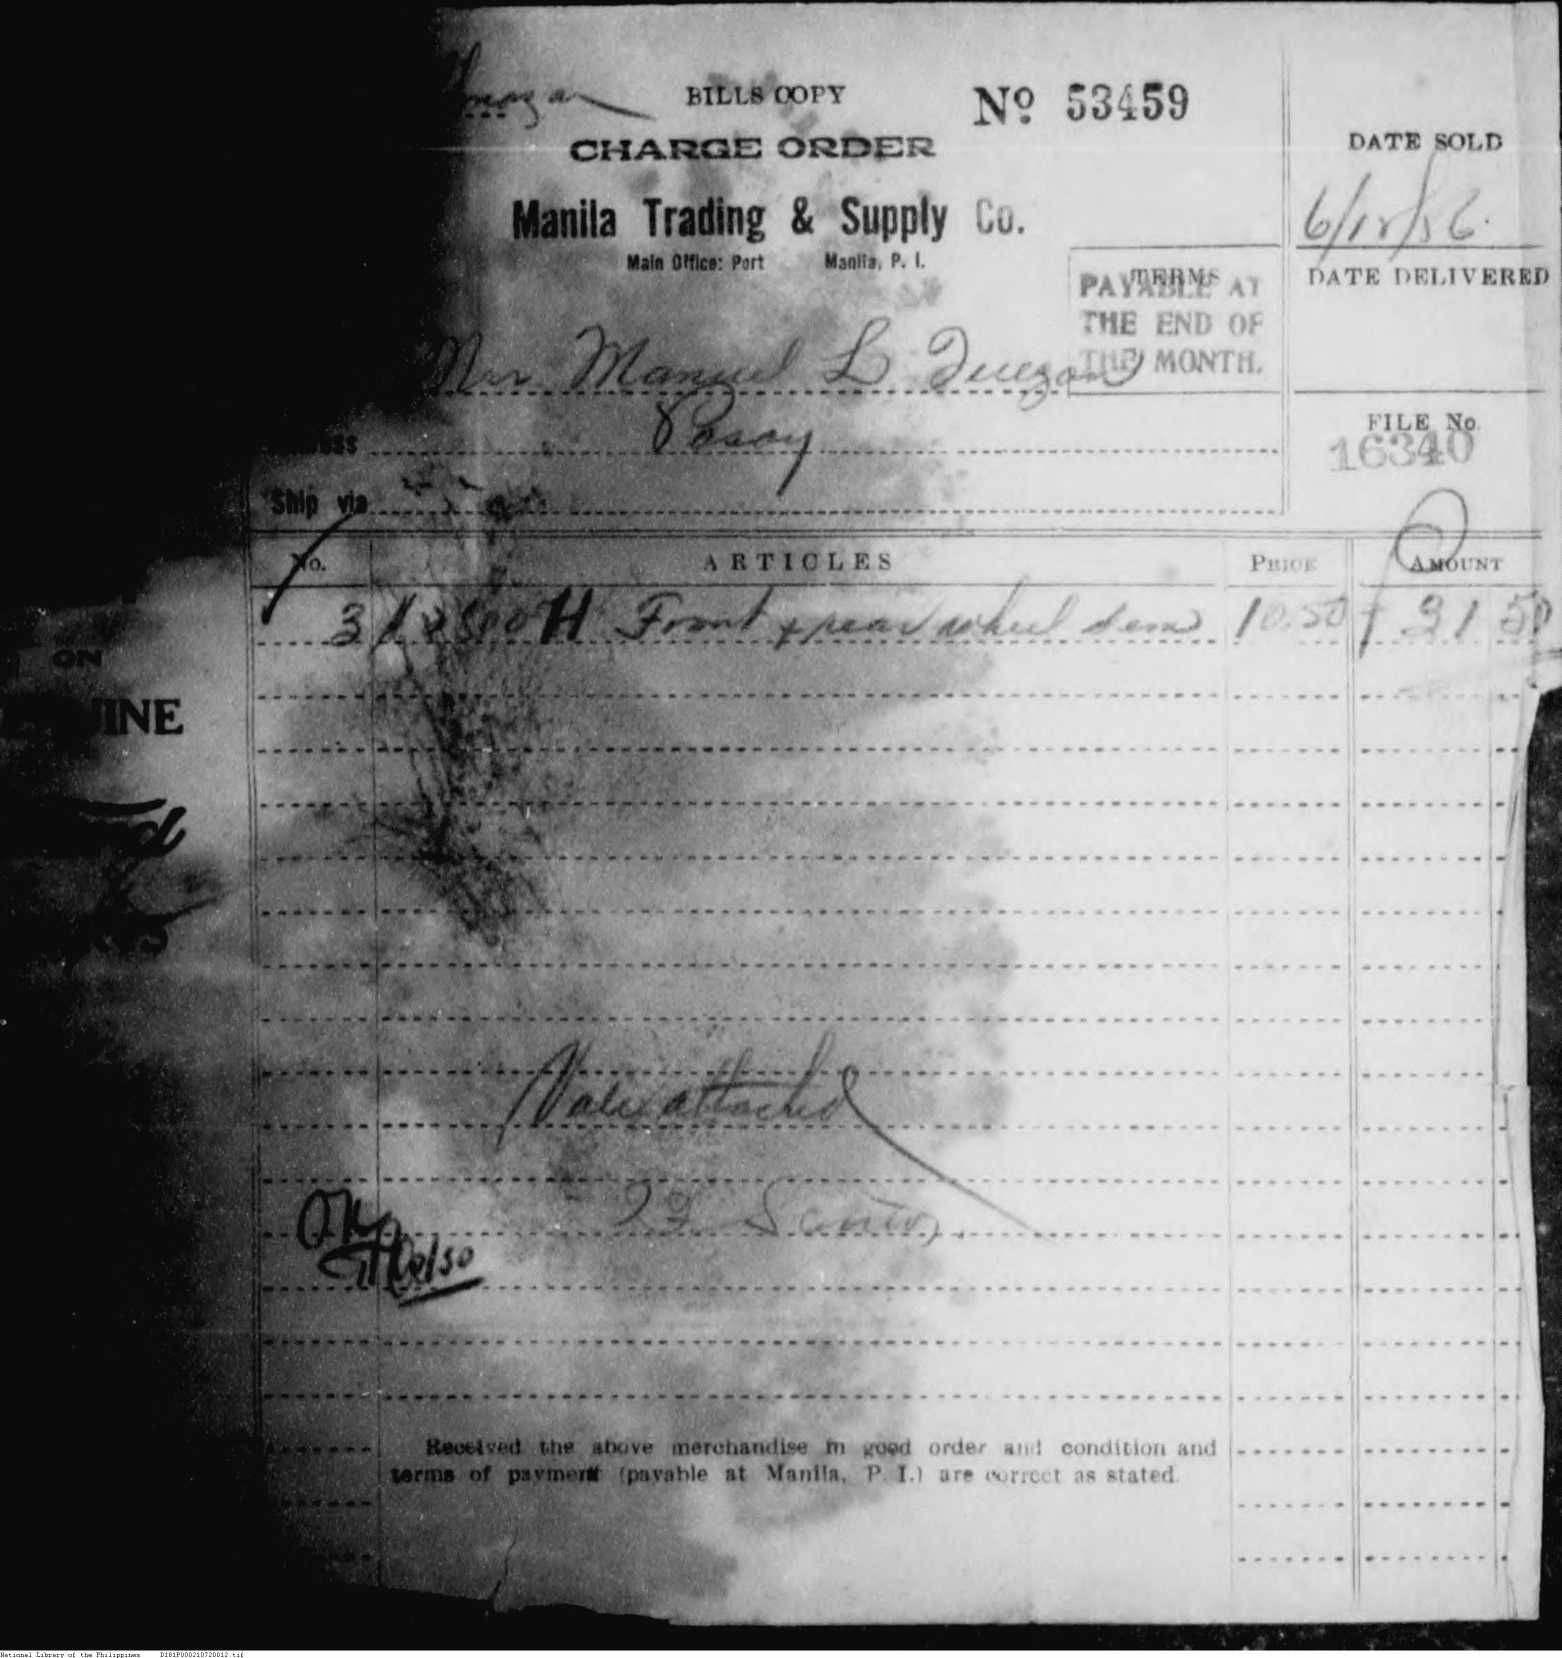 BILLS COPY
Nº 53459
CHARGE ORDER
Manila Trading & Supply Co.
Main Office: Port Manila, P. I.
DATE SOLD
6/12/36.
DATE DELIVERED
TERMS
PAYABLE AT
THE END OF
THE MONTH.
Mr. Manuel L Quezon
Pasay
FILE No.
16340
Ship via
No. ARTICLES PRICE AMOUNT
3 Front & rear wheel 10.50 31 50
ON
INE
Vale attached
Santos
OK
Received the above merchandise in good order and condition and
terms of payment (payable at Manila, P. I.) are correct as stated.
National Library of the Philippines D181P000210720012.tif